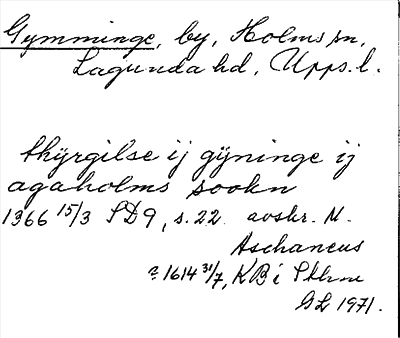 Gymminge, by, Holms sn,
Lagunda hd, Upps. l.
thyrgilse ij gÿninge ij
agaholms sookn
1366 15/3 SD 9, s. 22 avskr. M.
Aschaneus
1614 31/7, KB i Sthm
GL 1971.